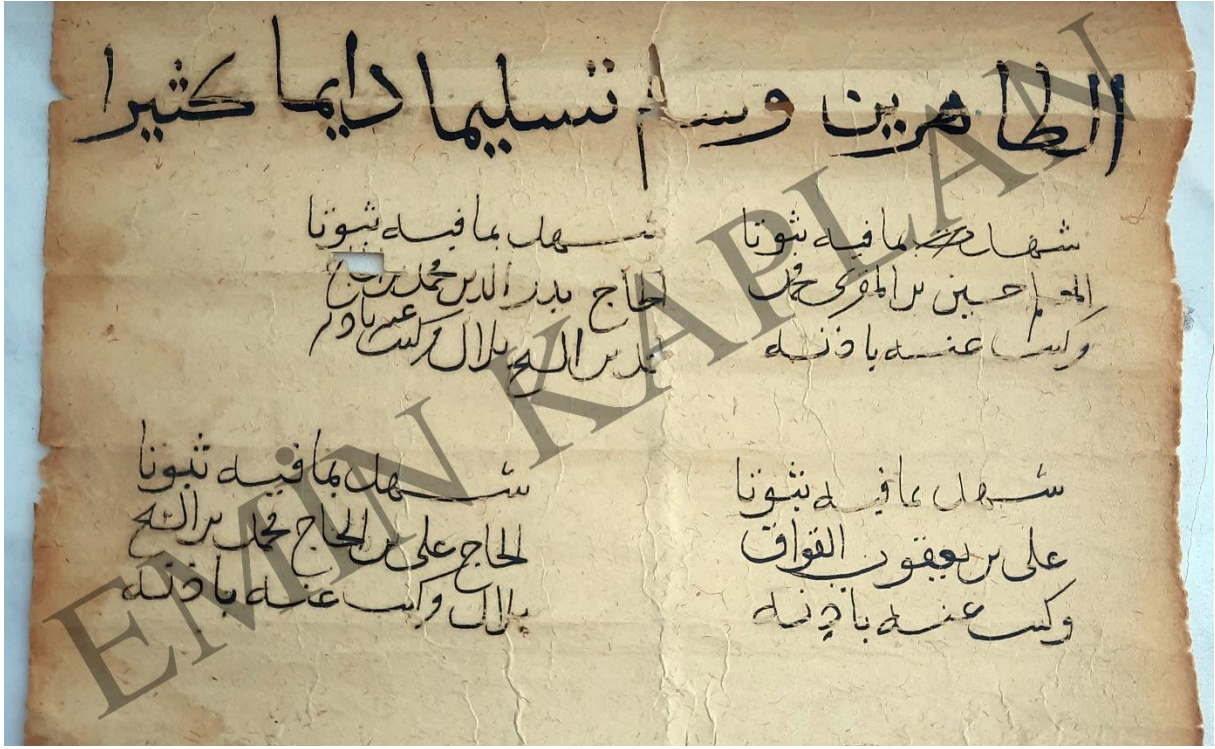 الطاهرين وسلم تسليما دايما كثيرا
شهد بما فيه ثبوتا
المعلم حسين بن المقرى محمد
وكتب عنه باذنه
شهد بما فيه ثبوتا
الحاج بدر الدين محمد بن الحاج
محمد بن الشيخ بلال وكتب عنه باذنه
شهد بما فيه ثبوتا
على بن يعقوب القواق
وكتب عنه باذنه
شهد بما فيه ثبوتا
الحاج على بن الحاج محمد بن الشيخ
بلال وكتب عنه باذنه
EMİN KAPLAN